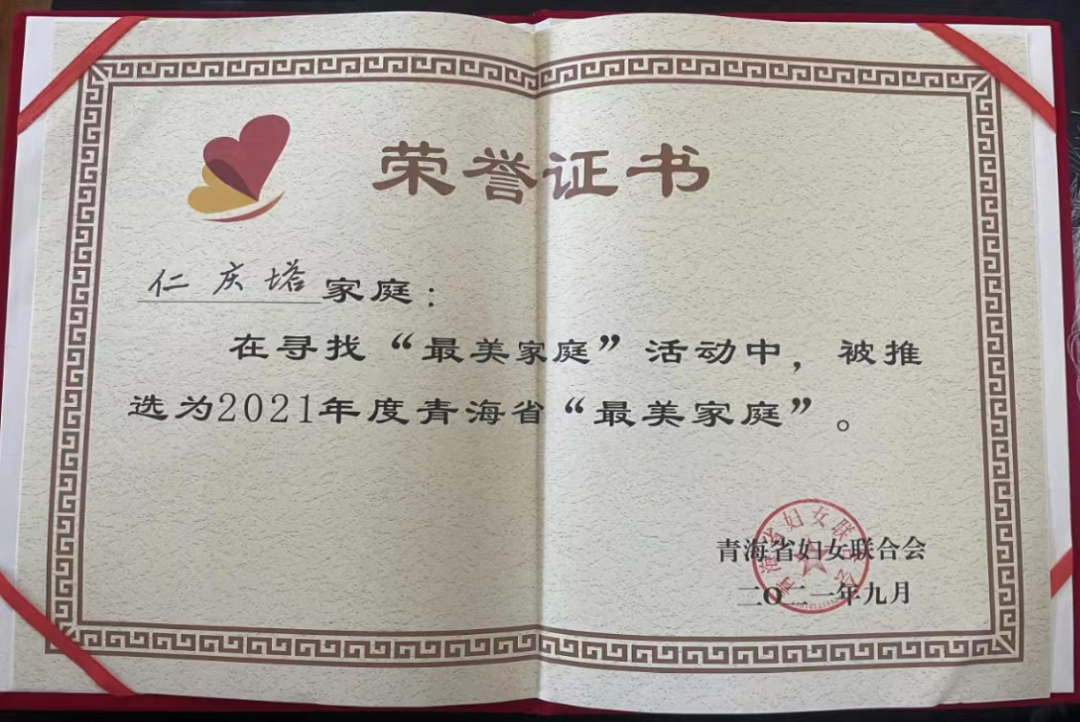 荣誉证书
仁庆塔家庭：
在寻找“最美家庭”活动中，被推
选为2021年度青海省“最美家庭”。
青海省妇女联合会
二〇二一年九月
青海省妇女联合会